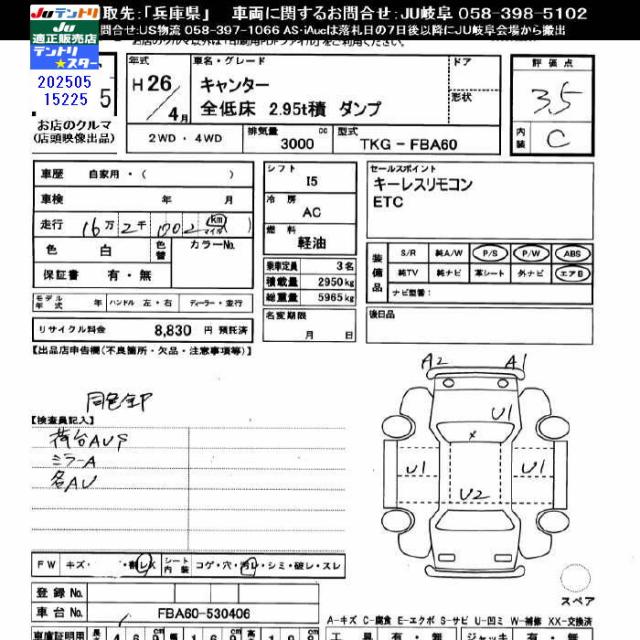 JUテントリ
JU
適正販売店
テントリ
★スター
取先:「兵庫県」 車両に関するお問合せ:JU岐阜 058-398-5102
問合せ:JS物流 058-397-1066 AS-iAucは落札日の7日後以降にJU岐阜会場から搬出
202505
15225
5
お店のクルマ
(店頭映像出品)
年式
H26/4月
車名・グレード
キャンター
全低床 2.95t積 ダンプ
ドア
形状
評価点
3.5
内装
C
2WD・4WD
排気量
3000 cc
型式
TKG-FBA60
車歴 自家用・( )
車検 年 月
走行 16万2千002 km マイル
色 白 色替 カラーNo.
保証書 有・無
モデル年式 年 ハンドル 左・右 ディーラー・並行
リサイクル料金 8,830 円 預託済
シフト
I5
冷房
AC
燃料
軽油
乗車定員 3名
積載量 2950kg
総重量 5965kg
名変期限
月 日
セールスポイント
キーレスリモコン
ETC
装備品
S/R 純A/W P/S P/W ABS
純TV 純ナビ 革シート 外ナビ エアB
ナビ型番:
後日品
【出品店申告欄(不良箇所・欠品・注意事項等)】
同色全P
【検査員記入】
荷台AUS
ミラーA
各AU
A2 A1
U1
U1 U1
U2
FW キズ・ ・割レX シート内装 コゲ・穴・汚レ・シミ・破レ・スレ
登録No.
車台No. FBA60-530406
スペア
A-キズ C-腐食 E-エクボ S-サビ U-凹ミ W-補修 XX-交換済
車庫証明用
工具 有・無 ジャッキ 有・無